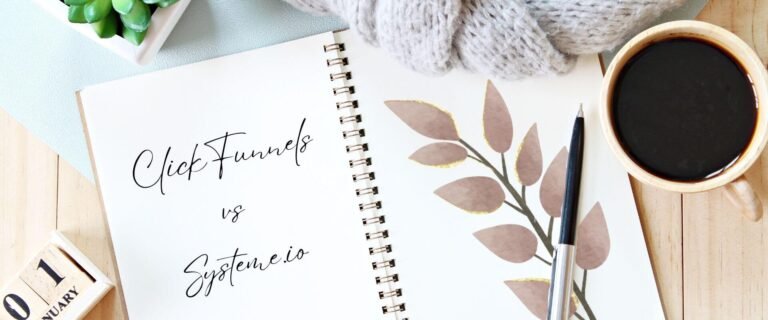 ClickFunnels
vs
Systeme.io
01
NUARY